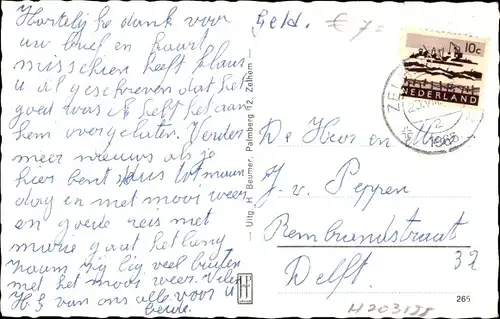 Hartelijke dank voor
uw brief en kaart
misschien heeft Klaus
u al geschreven dat het
goed was ik heft het aan
hem overgelaten. Verder
meer nieuws als je
hier bent dus tot maandag
en met mooi weer
en goede reis met
gaat het
zij lig veel buiten
met het mooi weer. Velen
H.G van ons alle voor u
beide.
Geld.
Uitg. H. Beumer, Palmberg 12, Zelhem
10c
NEDERLAND
ZEL
1965
De Heer en Mevr.
J. v. Peppen
Rembrandstraat
37
Delft
H
265